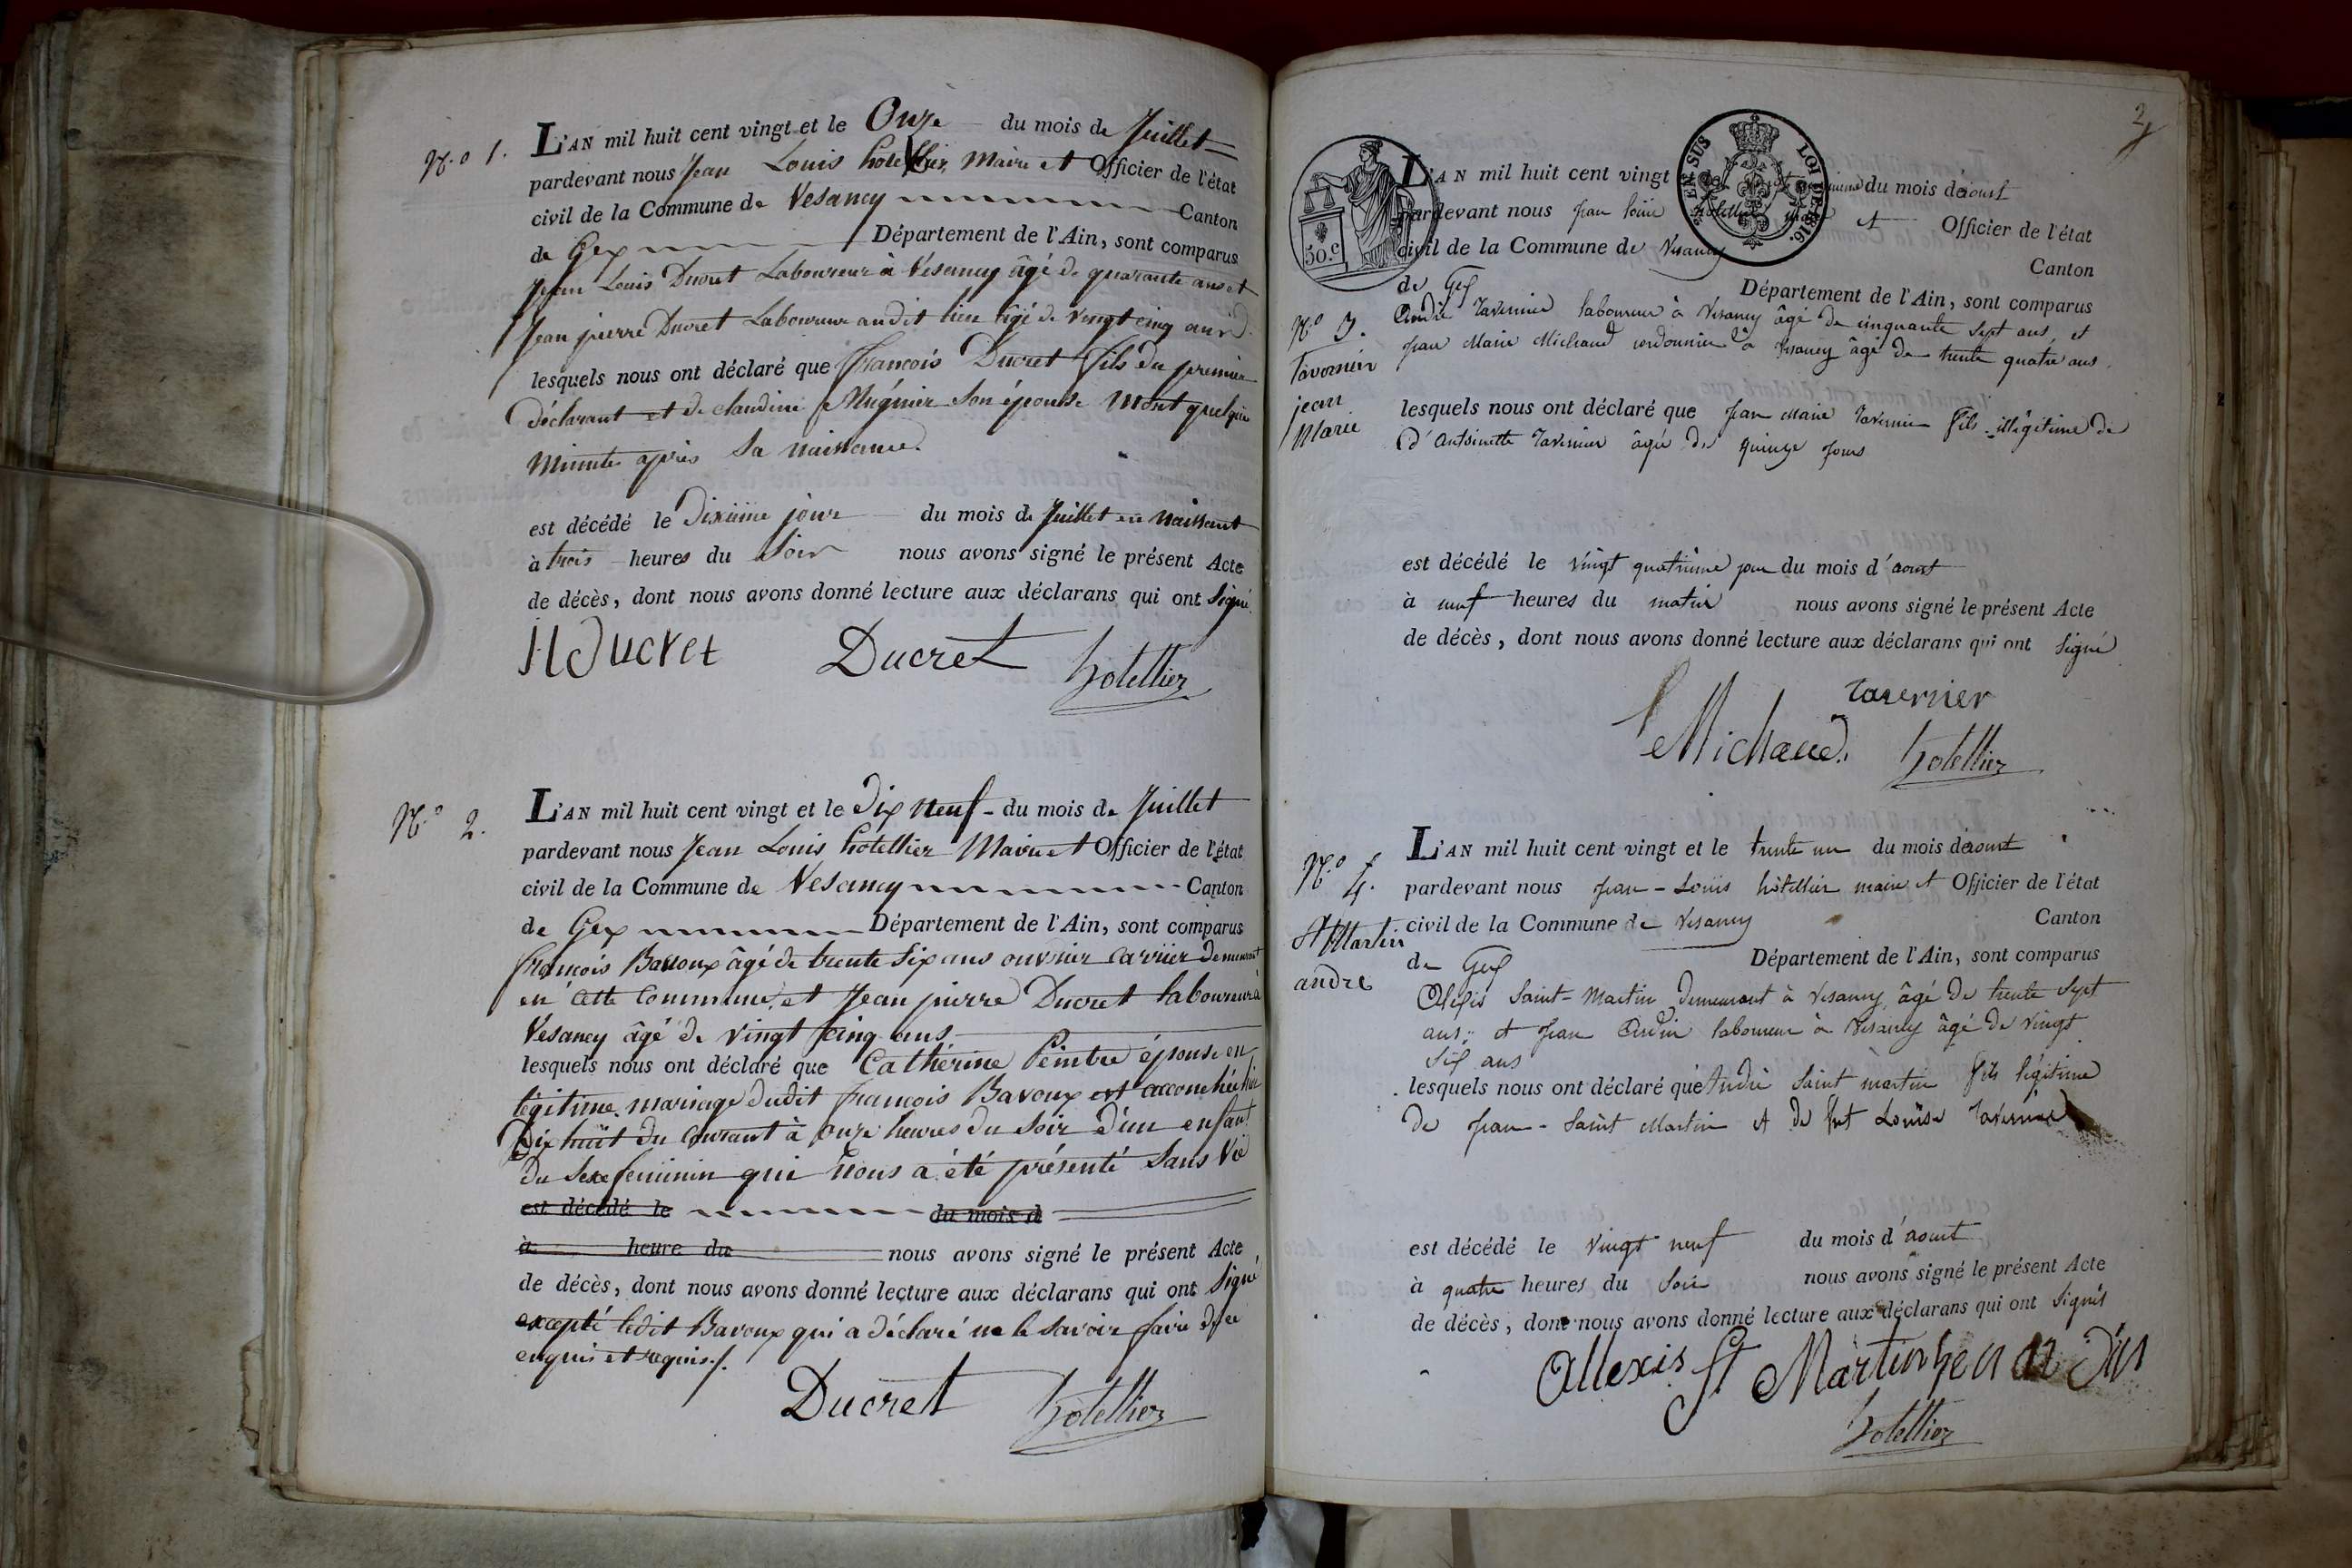 N.o 1.
L'AN mil huit cent vingt et le Onze du mois de Juillet
pardevant nous Jean Louis hotellier, Maire et Officier de l'état
civil de la Commune de Vesancy Canton
de Gex Département de l'Ain, sont comparus
Jean Louis Ducret Laboureur à Vesancy âgé de quarante ans et
Jean pierre Ducret Laboureur audit lieu âgé de vingt cinq ans
lesquels nous ont déclaré que françois Ducret fils du premier
déclarant et de claudine Mugnier son épouse mort quelque
minute après sa naissance.
est décédé le Dixième jour du mois de Juillet en naissant
à trois heures du soir nous avons signé le présent Acte
de décès, dont nous avons donné lecture aux déclarans qui ont signé.
Ducret Ducret hotellier
N.o 2.
L'AN mil huit cent vingt et le Dix neuf du mois de Juillet
pardevant nous Jean Louis hotellier Maire et Officier de l'état
civil de la Commune de Vesancy Canton
de Gex Département de l'Ain, sont comparus
françois Bavoux âgé de trente six ans ouvrier carrier demeurant
en cette Commune, et Jean pierre Ducret laboureur à
Vesancy âgé de vingt cinq ans
lesquels nous ont déclaré que Cathérine Peintre épouse en
légitime mariage dudit françois Bavoux est accouchée hier
Dix huit du courant à onze heures du soir d'un enfant
du sexe feminin qui nous a été présenté sans vie
est décédé le du mois d
à heure du nous avons signé le présent Acte
de décès, dont nous avons donné lecture aux déclarans qui ont signé,
excepté ledit Bavoux qui a déclaré ne le savoir faire de ce
enquis et requis.
Ducret hotellier
2
EN SUS LOI DE 1816.
50.c
L'AN mil huit cent vingt du mois d'aoust
pardevant nous jean louis hotellier maire et Officier de l'état
civil de la Commune de Vesancy
Canton
de Gex Département de l'Ain, sont comparus
N.o 3.
Tavernier
jean
Marie
André Tavernier laboureur à Vesancy âgé de cinquante sept ans, et
jean Marie Michaud cordonnier à Vesancy âgé de trente quatre ans.
lesquels nous ont déclaré que jean Marie Tavernier fils illégitime de
d'Antoinette Tavernier âgé de quinze jours
est décédé le vingt quatrième jour du mois d'aoust
à neuf heures du matin nous avons signé le présent Acte
de décès, dont nous avons donné lecture aux déclarans qui ont signé
tavernier
Michaud. hotellier
N.o 4.
St Martin
andré
L'AN mil huit cent vingt et le trente un du mois d'aoust
pardevant nous jean-Louis hôtellier maire et Officier de l'état
civil de la Commune de Vesancy Canton
de Gex Département de l'Ain, sont comparus
Alexis Saint-Martin demeurant à Vesancy, âgé de trente sept
ans; et jean Andin laboureur à Vesancy âgé de vingt
six ans
lesquels nous ont déclaré que André Saint martin fils légitime
de jean-Saint Martin et de Louise Tavernier
est décédé le vingt neuf du mois d'aoust
à quatre heures du soir nous avons signé le présent Acte
de décès, dont nous avons donné lecture aux déclarans qui ont signés
Allexis St Martin
hotellier